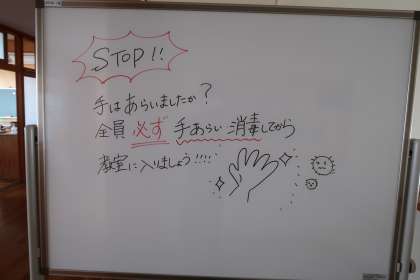 STOP!!
手はあらいましたか？
全員 必ず 手あらい 消毒してから
教室に入りましょう!!!!